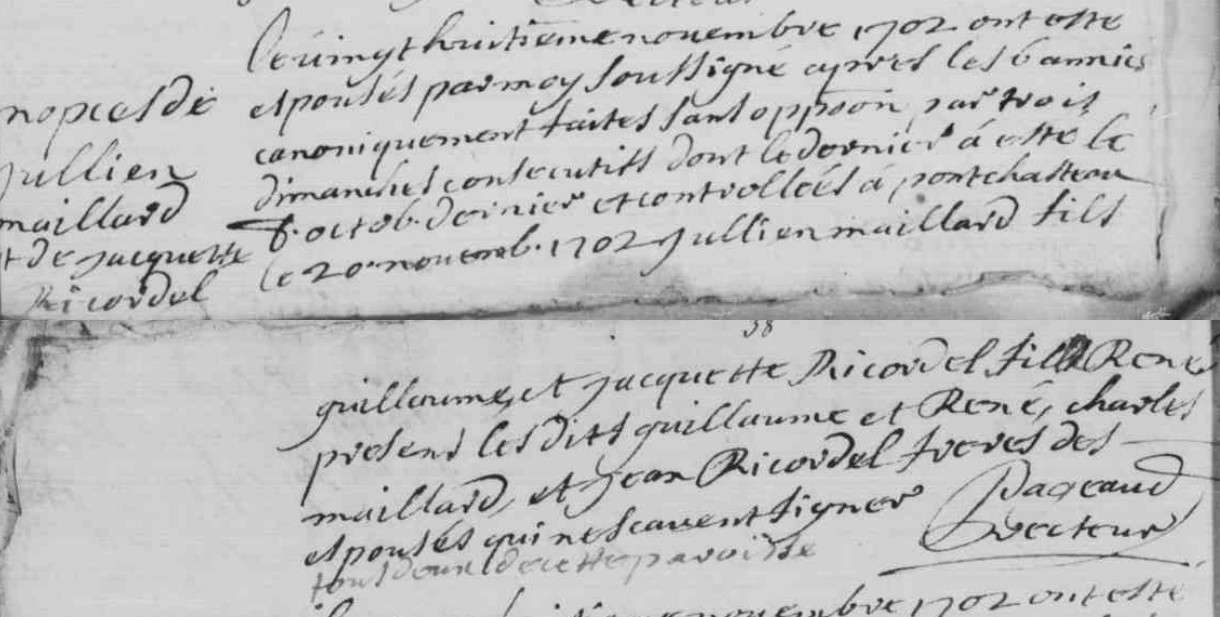 nopces de
Jullien
maillard
et de jacquette
Ricordel
le vingt huitieme novembre 1702 ont esté
espousés par moy soussigné apres les bannies
canoniquement faites sans opposon par trois
dimanches consecutifs dont le dernier á esté le
8. octob. dernier et controllées á pontchasteau
le 20. novemb. 1702 Jullien maillard fils
58
guillaume, et jacquette Ricordel fille René
presens lesdits guillaume et René, charles
maillard, et jean Ricordel freres des
espousés qui ne scavent signer
tous deux de cette paroisse
Dageaud
Recteur
novembre 1702 ont esté